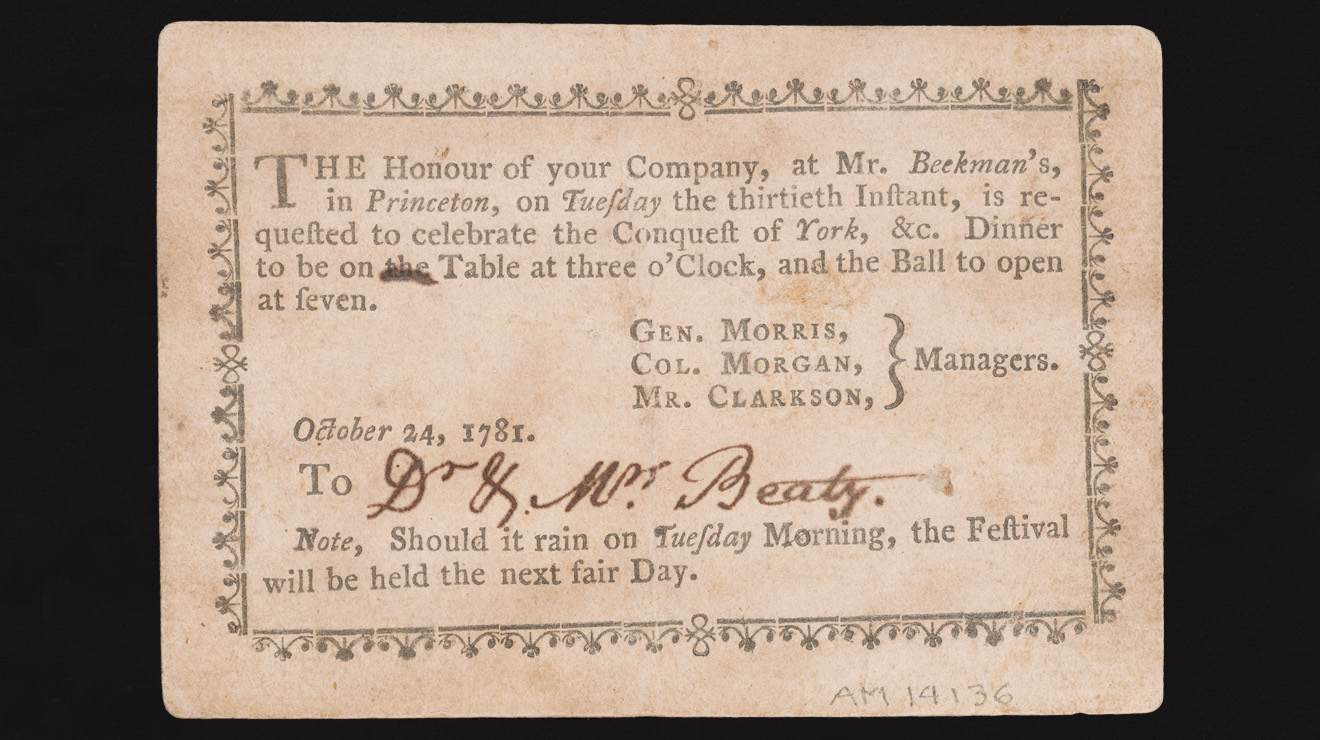 THE Honour of your Company, at Mr. Beekman's,
in Princeton, on Tueſday the thirtieth Inſtant, is re-
queſted to celebrate the Conqueſt of York, &c. Dinner
to be on the Table at three o'Clock, and the Ball to open
at ſeven.
GEN. MORRIS,
COL. MORGAN,
MR. CLARKSON,
} Managers.
October 24, 1781.
To Dr &. Mrs. Beaty.
Note, Should it rain on Tueſday Morning, the Feſtival
will be held the next fair Day.
AM 14136